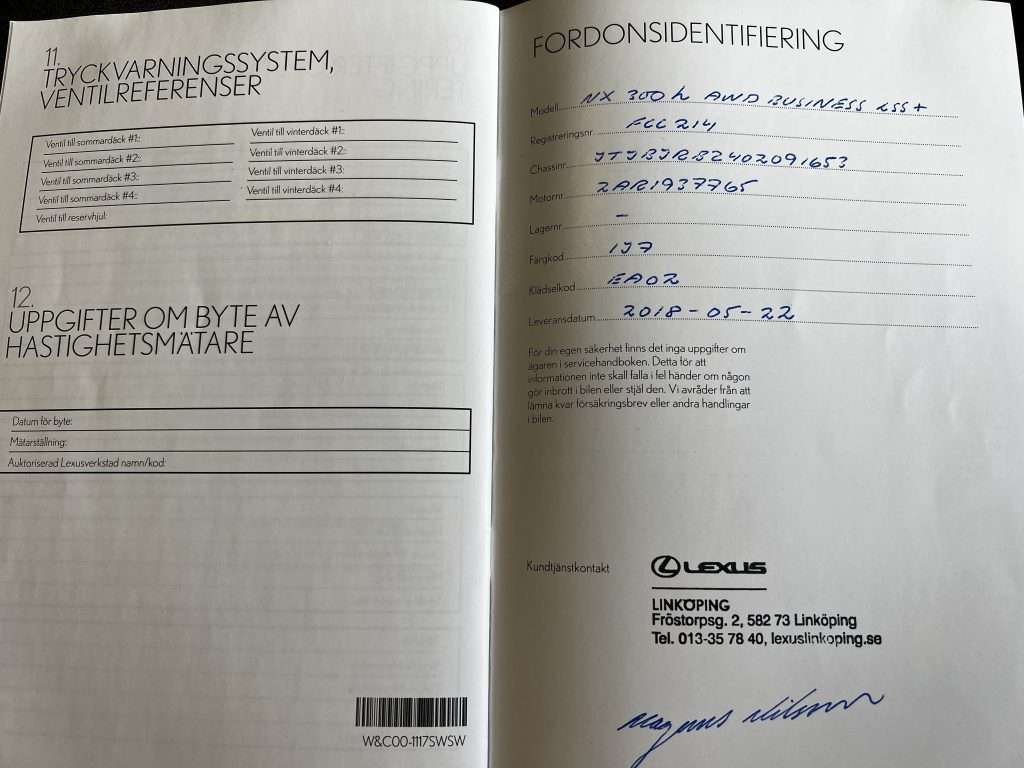 11.
TRYCKVARNINGSSYSTEM,
VENTILREFERENSER
Ventil till sommardäck #1:
Ventil till sommardäck #2:
Ventil till sommardäck #3:
Ventil till sommardäck #4:
Ventil till reservhjul:
Ventil till vinterdäck #1:
Ventil till vinterdäck #2:
Ventil till vinterdäck #3:
Ventil till vinterdäck #4:
12.
UPPGIFTER OM BYTE AV
HASTIGHETSMÄTARE
Datum för byte:
Mätarställning:
Auktoriserad Lexusverkstad namn/kod:
W&C00-1117SWSW
FORDONSIDENTIFIERING
Modell NX 300h AWD BUSINESS LSS+
Registreringsnr. FCC 214
Chassinr. JTJBJRBZ402091653
Motornr. 2AR1937765
Lagernr. -
Färgkod 1J7
Klädselkod EA02
Leveransdatum 2018-05-22
För din egen säkerhet finns det inga uppgifter om
ägaren i servicehandboken. Detta för att
informationen inte skall falla i fel händer om någon
gör inbrott i bilen eller stjäl den. Vi avråder från att
lämna kvar försäkringsbrev eller andra handlingar
i bilen.
Kundtjänstkontakt
LEXUS
LINKÖPING
Fröstorpsg. 2, 582 73 Linköping
Tel. 013-35 78 40, lexuslinkoping.se
Magnus Nilsson